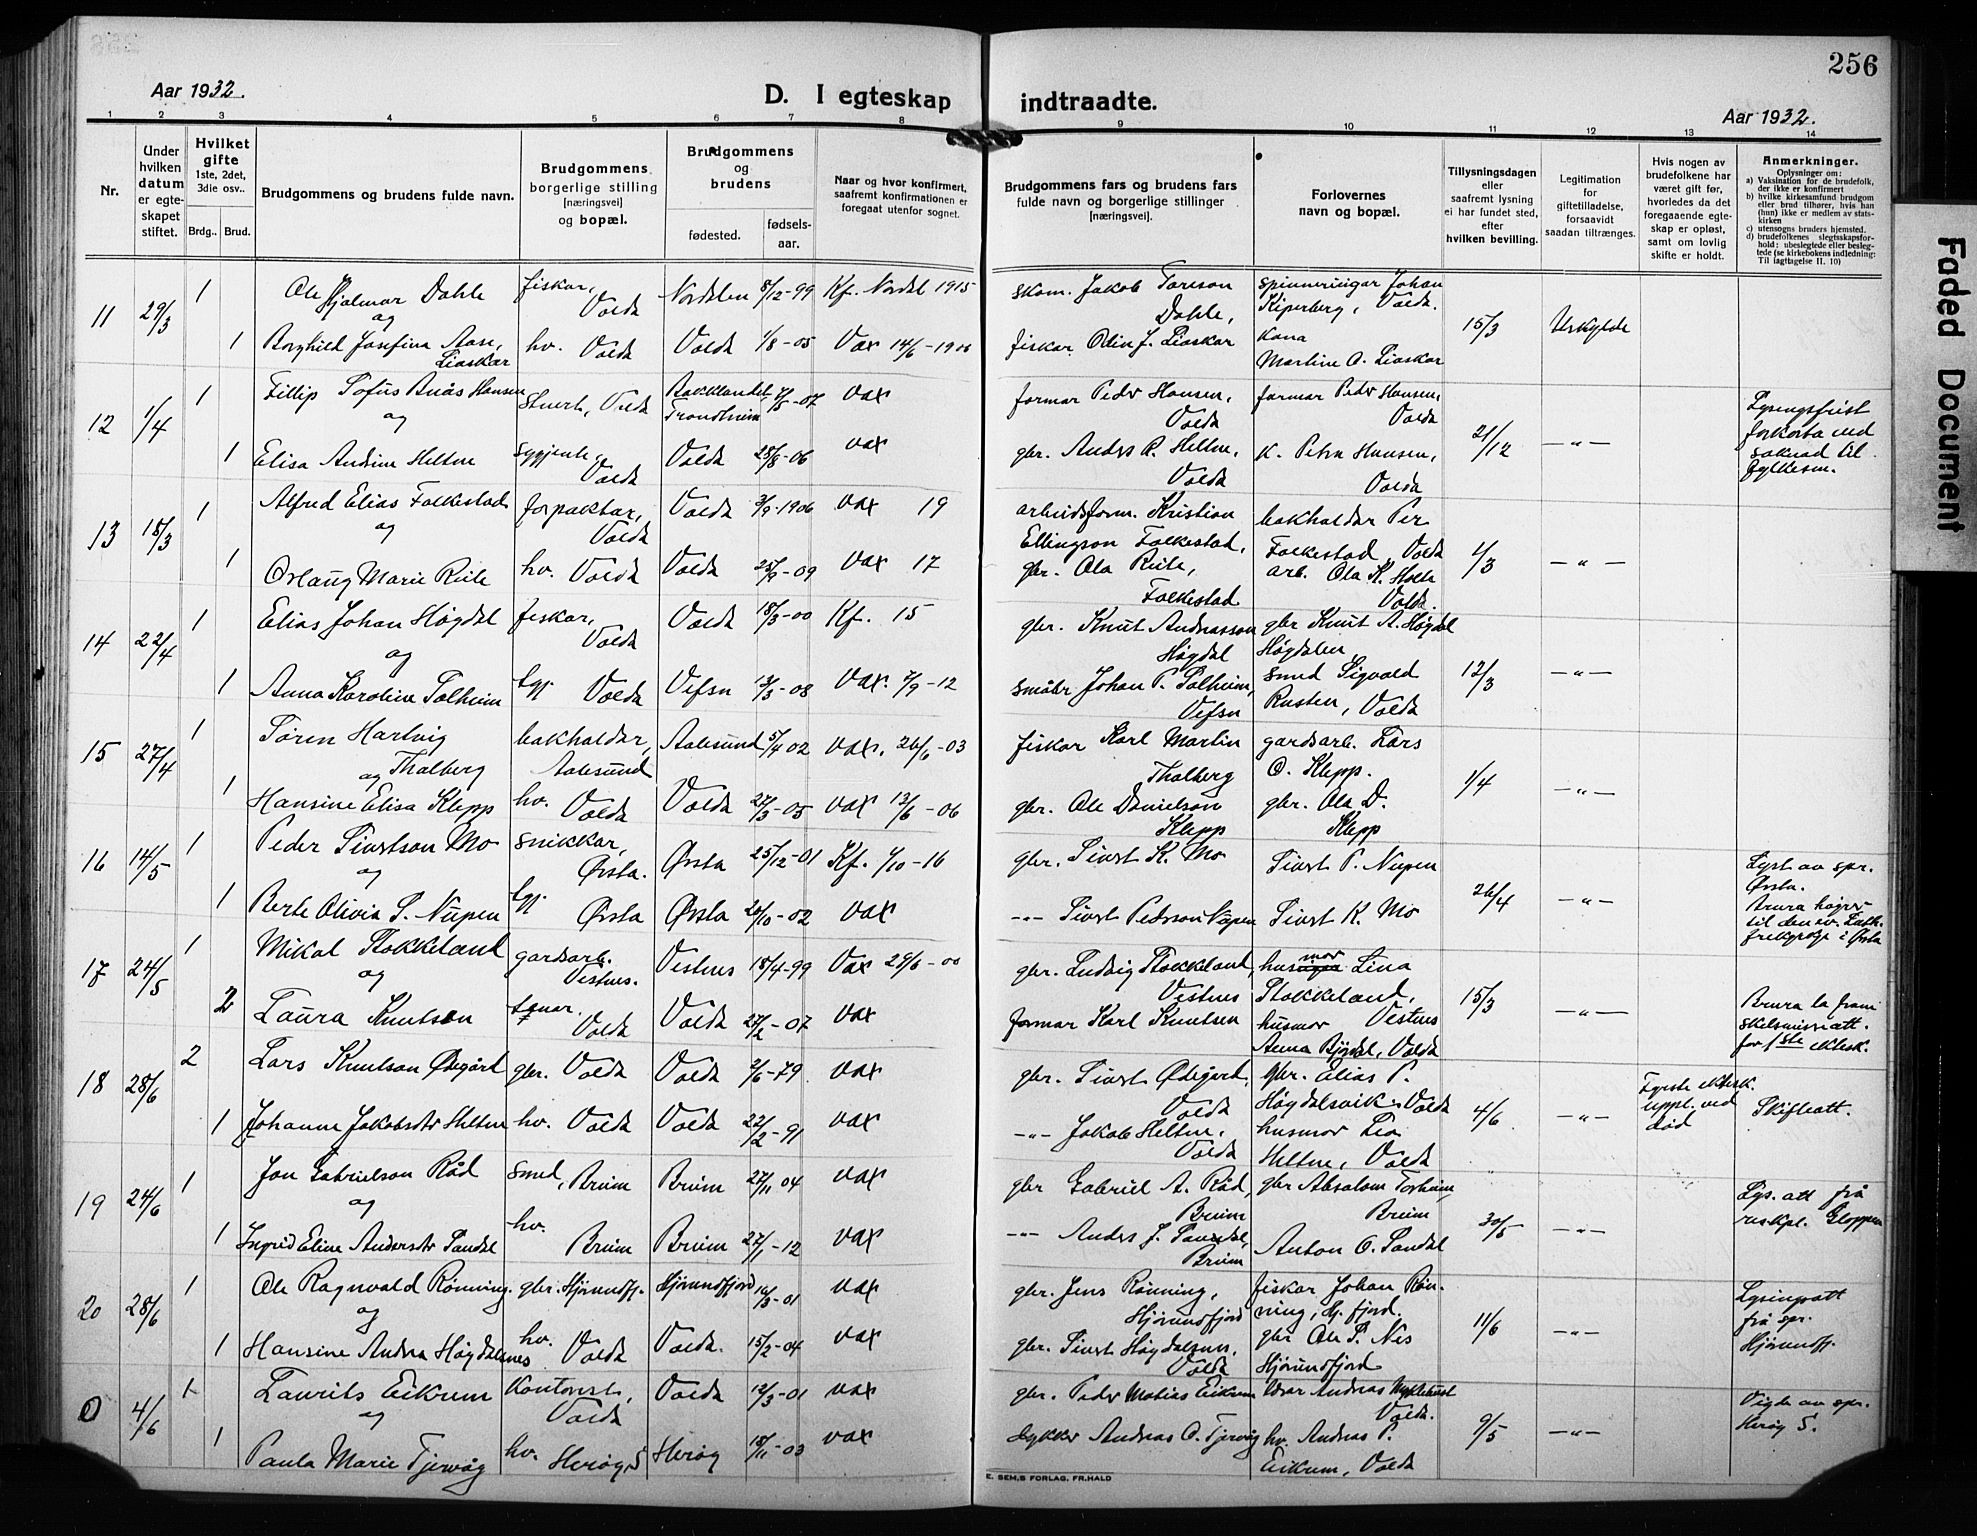 256
Aar 1932.
D. I egteskap indtraadte.
Aar 1932.
1 2 3 4 5 6 7 8 9 10 11 12 13 14
Nr.
Under hvilken datum er egteskapet stiftet.
Hvilket gifte 1ste, 2det, 3die osv..
Brdg.. Brud.
Brudgommens og brudens fulde navn.
Brudgommens borgerlige stilling [næringsvei] og bopæl.
Brudgommens og brudens
fødested.
fødselsaar.
Naar og hvor konfirmert, saafremt konfirmationen er foregaat utenfor sognet.
Brudgommens fars og brudens fars fulde navn og borgerlige stillinger [næringsvei].
Forlovernes navn og bopæl.
Tillysningsdagen eller saafremt lysning ei har fundet sted, efter hvilken bevilling.
Legitimation for giftetilladelse, forsaavidt saadan tiltrænges.
Hvis nogen av brudefolkene har været gift før, hvorledes da det foregaaende egteskap er opløst, samt om lovlig skifte er holdt.
Anmerkninger.
Oplysninger om:
a) Vaksination for de brudefolk, der ikke er konfirmert
b) hvilke kirkesamfund brudgom eller brud tilhører, hvis han (hun) ikke er medlem av statskirken
c) utensogns bruders hjemsted.
d) brudefolkenes slegtsskapsforhold: ubeslegtede eller beslegtede (se kirkebokens indledning: Til iagttagelse II. 10)
11 29/3 1 Ole Hjalmar Dahle fiskar, Volda Nordalen 8/12-99 Kf. Nordal 1915 skom. Jakob Toreson Dahle, spinneriingar Johan Kiperberg, Volda. 15/3 Uskylde
og
1 Borghild Josefina Aase Liaskar hv. Volda Volda 1/8-05 Vax 14/6-1906 fiskar Odin J. Liaskar kona Martine O. Liaskar
12 1/4 1 Fillip Sofus Buås Hansen Stuert, Volda Bakklandet, Trondheim -07 vax formar Peder Hansen, Volda formar Peder Hansen, Volda 21/12 -"- Lysingsfrist forkorta ved søknad til fylkesm.
og
1 Elisa Andrine Heltne Volda Volda 28/8-06 vax gbr. Anders R. Heltne, Volda K. Petra Hansen, Volda
13 18/3 1 Alfred Elias Folkestad forpaktar, Volda Volda 3/9-1906 vax 19 arbeidsform. Kristian Ellingson Folkestad, bakhaldar Per Folkestad, Volda 1/3 -"-
og
1 Oslaug Marie Riite hv. Volda Volda 25/9-09 vax 17 gbr. Ola Riite, Folkestad arb. Ola K. Holta Volda.
14 22/4 1 Elias Johan Høgdal fiskar, Volda Volda 18/3-00 Kf. 15 gbr. Knut Andreasson Høgdal gbr Knut A. Høgdal Høgdalen 12/3 -"-
og
1 Anna Karoline Solheim tgj. Volda Vefsn 13/3-08 vax. 7/9-12 småbr Johan P. Solheim, Vefsn smed Sigvald Rusten, Volda
15 27/4 1 Søren Hartvig Thalberg bakhaldar, Aalesund Aalesund 5/4 02 vax. 26/6-03 fiskar Karl Martin Thalberg gardsarb. Lars O. Klepp. 1/4 -"-
og
1 Hansine Elisa Klepp hv. Volda Volda 27/3-05 vax 13/6-06 gbr. Ole Danielson Klepp gbr. Ola D. Klepp
16 14/5 1 Peder Sivertson Mo snikkar, Ørsta. Ørsta 25/12-01 Kf. 1/10-16 gbr. Sivert K. Mo Sivert P. Nupen 26/4 -"- Lyst av spr. Ørsta. Brura høyrer til den ev. Luth. frikyrkje i Ørsta
og
1 Berte Olivia S. Nupen tgj. Ørsta Ørsta 20/10-02 vax -"- Sivert Pederson Nupen Sivert K. Mo
17 24/5 1 Mikal Stokkeland gardsarb. Vestnes. Vestnes 18/4-99 Vax 29/6-00 gbr. Ludvig Stokkeland, Vestnes husmor Lina Stokkeland, Vestnes 15/3 -"-
og
2 Laura Knutsen Volda Volda 27/2-07 vax formar Karl Knutsen husmor Anna Bjørdal, Volda Brura la fram skilsmisseatt. for 1ste ektesk.
18 28/6 2 Lars Knutson Ødegård gbr. Volda Volda 2/6-79 vax gbr. Sivert Ødegård, Volda gbr. Elias P. Høgdalsvik, Volda 4/6 -"- Fyrste ektesk. uppl. ved død Skifteatt.
1 Johanne Jakobsdtr Heltne hv. Volda Volda 22/2-91 vax -"- Jakob Heltne, Volda husmor Lea Heltne, Volda
19 24/6 1 Jon Gabrielson Råd smed, Breim Breim 27/11 04 vax gbr Gabriel A. Råd, Breim gbr Absalom Forheim Breim 30/5 -"- Lys. att frå reskpl. Gloppen
og
1 Ingrid Eline Andersdtr Sandal hv. Breim Breim 27/1-12 vax -"- Anders J. Sandal, Breim Anton O. Sandal
20 28/6 1 Ole Ragnvald Rønning gbr. Hjørundfj. Hjørundfjord 14/3-01 vax gbr. Jens Rønning, Hjørundfjord fiskar Johan Rønning, Hj. fjord. 11/6 -"- Lysingsatt frå spr. Hjørundfj.
og
1 Hansine Andrea Høgdalsnes hv. Volda Volda. 15/2-04 vax gbr. Sivert Høgdalsnes, Volda gbr Ole P. Nes Hjørundfjord
0 4/6 1 Laurits Eikrem Kontorist, Volda Volda 12/3-01 vax gbr. Peder Matias Eikrem lærar Andreas Myklebust Volda. 9/5 -"- Vigde av spr. Herøy S.
og
1 Paula Marie Tjervåg hv. Herøy S Herøy 18/11-03 vax dykker Andreas O. Tjervåg hv. Andreas P. Eikrem, Volda
E. SEM,S FORLAG, FR.HALD
Faded Document